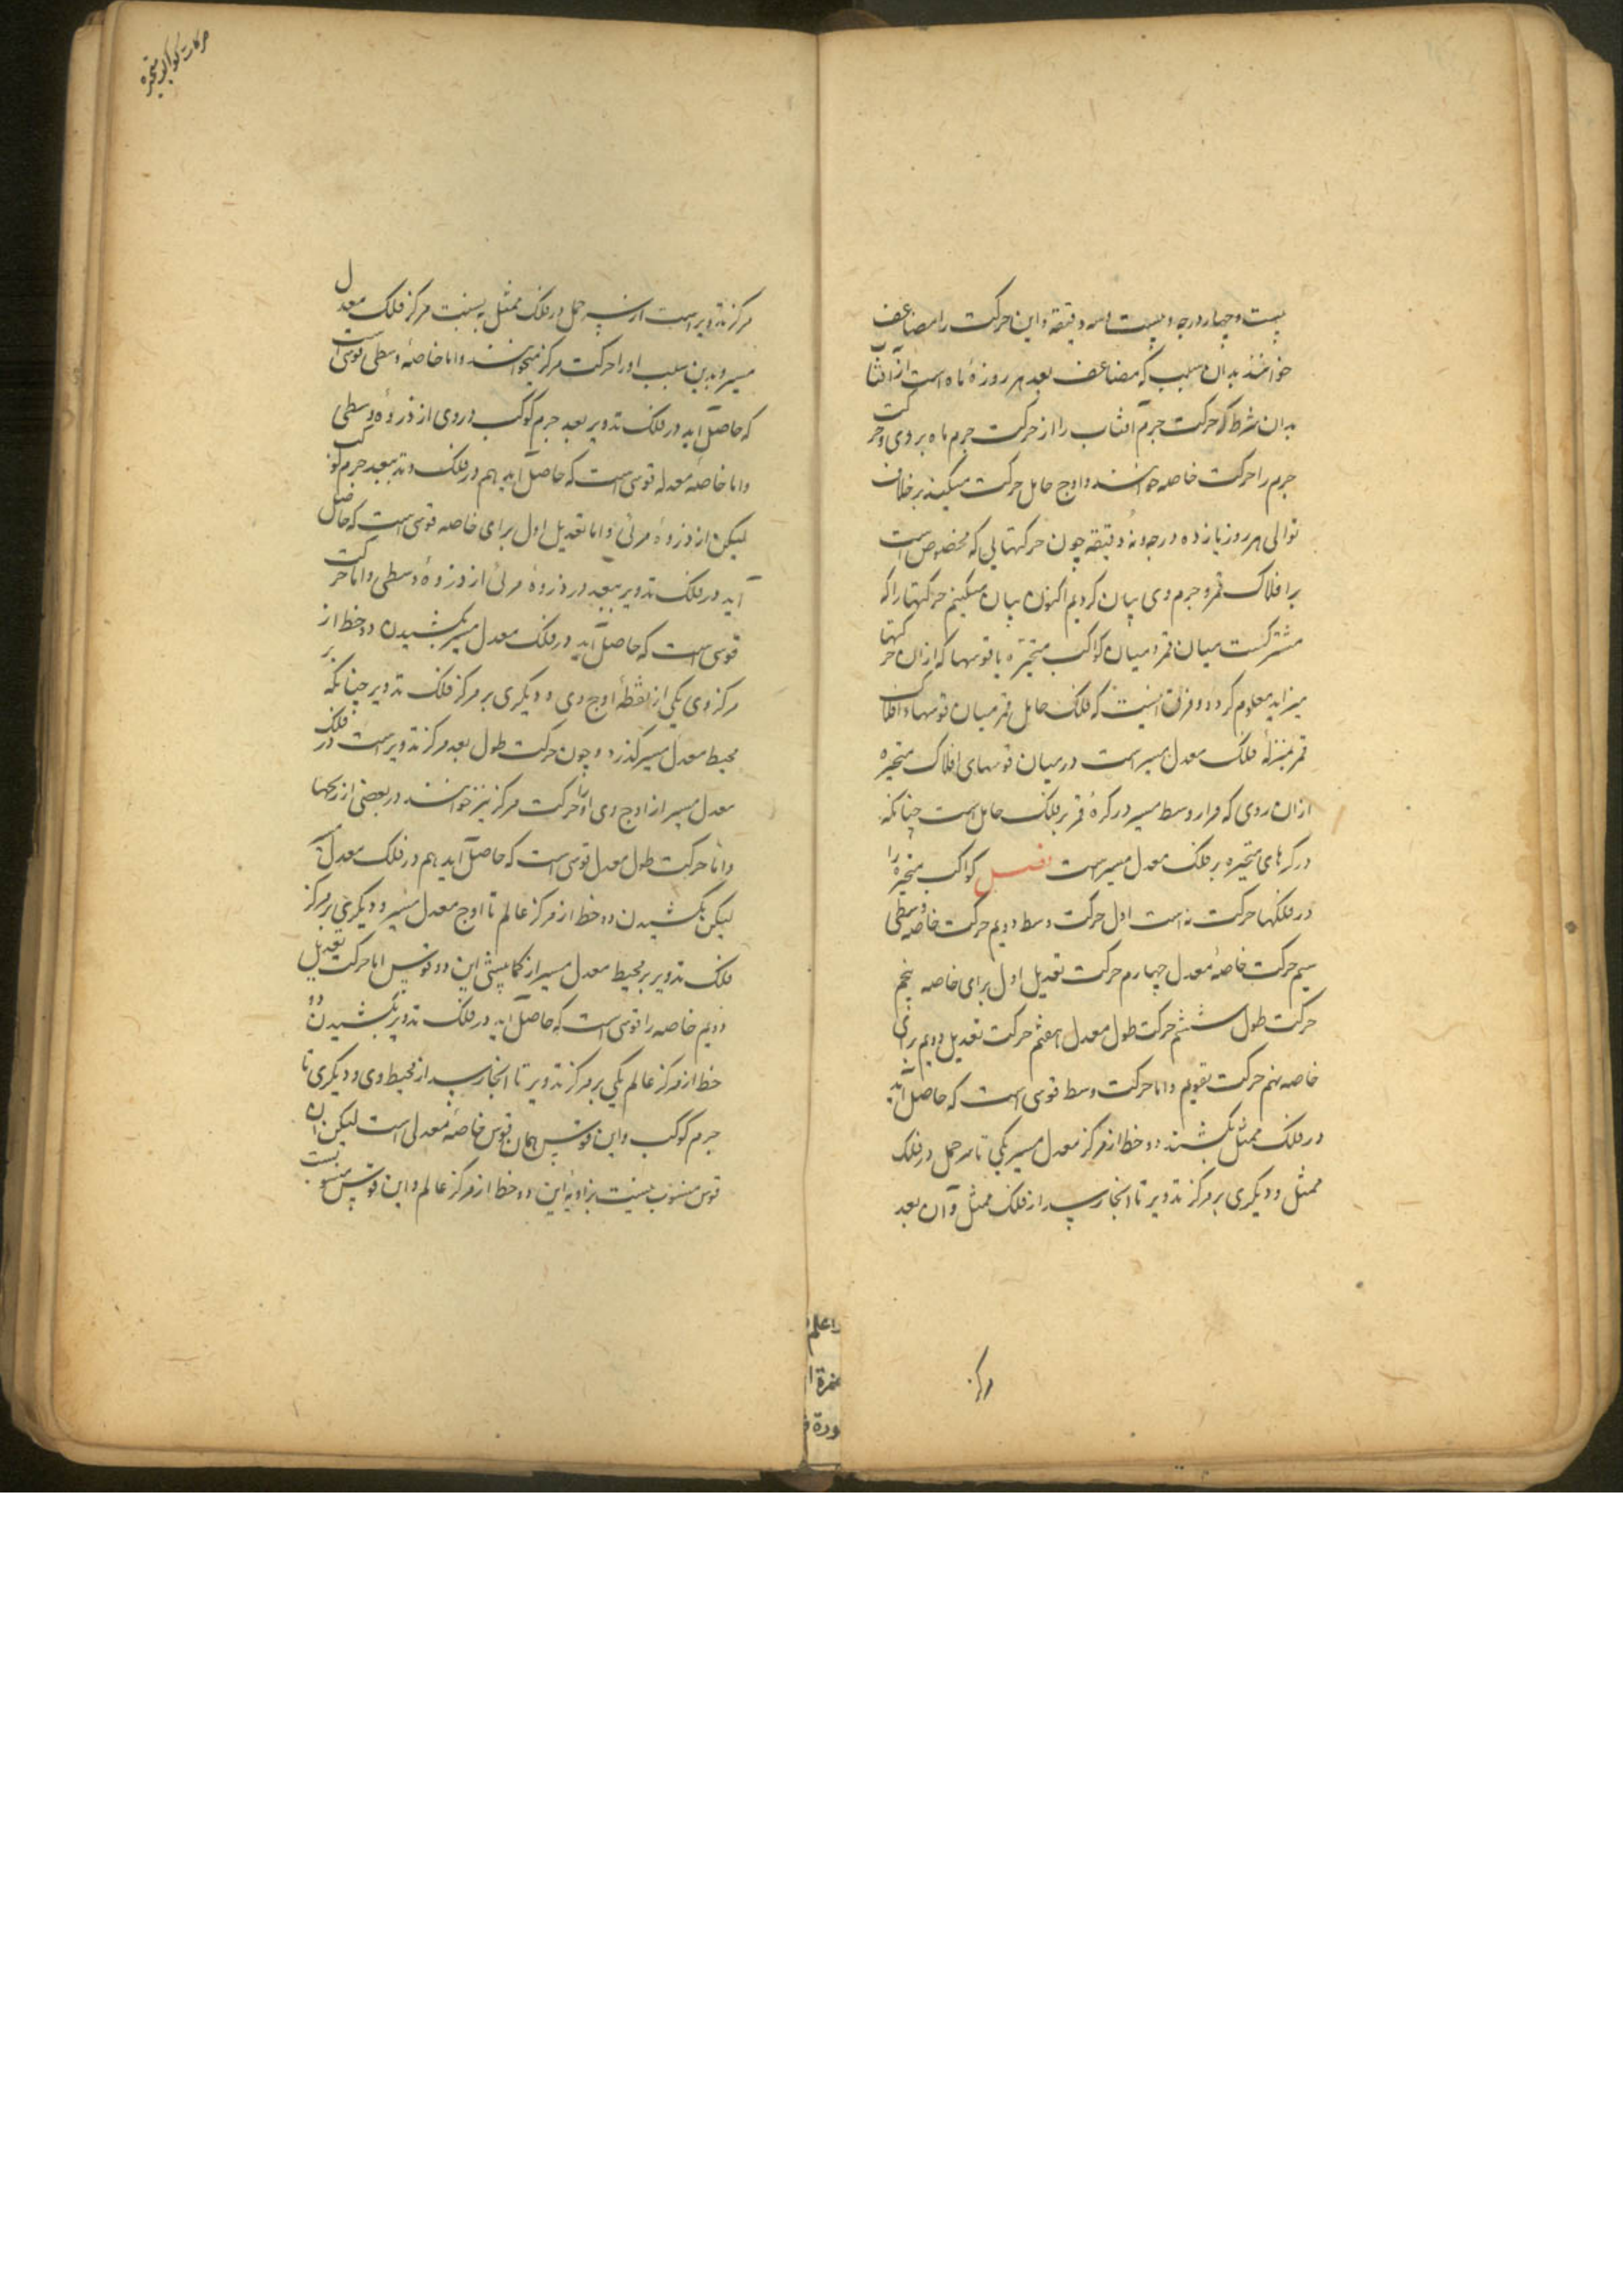 بیست و چهار درجه و بیست و سه دقیقه و این حرکت را مضاعف
خوانند بدان سبب که مضاعف بعد هر روزهٔ ماه است از آفتاب
بدان شرط که حرکت جرم آفتاب را از حرکت جرم ماه بر وی و حرکت
جرم را حرکت خاصه خوانند و اوج حامل حرکت میکند بر خلاف
توالی هر روز یازده درجه و نه دقیقه چون حرکتهایی که مخصوص است
بر افلاک قمر و جرم وی بیان کردیم اکنون بیان میکنیم حرکتها را که
مشترکست میان قمر و میان کواکب متحیره با قوسها که ازان حرکتها
میزاید معلوم کردد و فرق اینست که فلک حامل قمر میان قوسها و افلاک
قمر بمنزلهٔ فلک معدل مسیر است در میان قوسهای افلاک متحیره
ازان روی که مدار وسط مسیر در کرهٔ قمر بر فلک حامل است چنانکه
در کرهای متحیره بر فلک معدل مسیر است فصل کواکب متحیره را
در فلکها حرکت نه است اول حرکت وسط دویم حرکت خاصه وسطی
سیم حرکت خاصهٔ معدل چهارم حرکت تعدیل اول برای خاصه پنجم
حرکت طول ششم حرکت طول معدل هفتم حرکت تعدیل دویم برای
خاصه نهم حرکت تقویم و اما حرکت وسط قوسی است که حاصل آید
در فلک ممثل بکشند دو خط از مرکز معدل مسیر یکی تا سر حمل در فلک
ممثل و دیکری بر مرکز تدویر تا آنجا رسد از فلک ممثل و آن بعد
مرکز
حرکات کواکب متحیره
مرکز تدویر است از سر حمل در فلک ممثل به نسبت مرکز فلک معدل
مسیر و بدین سبب او را حرکت مرکز میخوانند و اما خاصهٔ وسطی قوسی است
که حاصل آید در فلک تدویر بعد جرم کوکب در وی از ذروهٔ وسطی
و اما خاصهٔ معدله قوسی است که حاصل آید هم در فلک تدویر ببعد جرم کوکب
لیکن از ذروهٔ مرئی و اما تعدیل اول برای خاصه قوسی است که حاصل
آید در فلک تدویر ببعد ذروهٔ مرئی از ذروهٔ وسطی و اما حرکت
قوسی است که حاصل آید در فلک معدل مسیر بکشیدن دو خط از
مرکز وی یکی از نقطهٔ اوج وی و دیکری بر مرکز فلک تدویر چنانکه بر
محیط معدل مسیر کذرد و چون حرکت طول بعد مرکز تدویر است در فلک
معدل مسیر از اوج وی او را حرکت مرکز نیز خوانند در بعضی از زیجها
و اما حرکت طول معدل قوسی است که حاصل آید هم در فلک معدل
لیکن بکشیدن دو خط از مرکز عالم تا اوج معدل مسیر و دیکری بر مرکز
فلک تدویر بر محیط معدل مسیر از کما بیشی این دو قوس اما حرکت تعدیل
دویم خاصه را قوسی است که حاصل آید در فلک تدویر بکشیدن دو
خط از مرکز عالم یکی بر مرکز تدویر تا آنجا رسد از محیط وی و دیکری تا
جرم کوکب و این قوس همان قوس خاصهٔ معدلی است لیکن آن
قوس منسوب نیست بزاویهٔ این دو خط از مرکز عالم و این قوس منسوبست